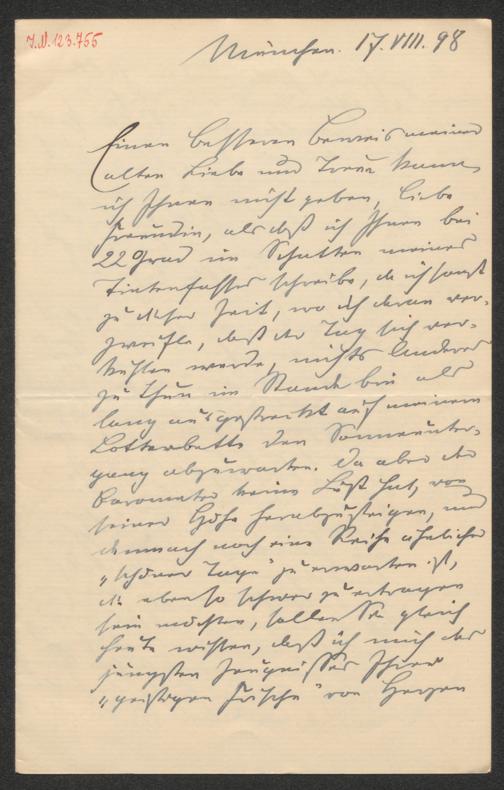 J.N. 123.755
München. 17. VIII. 98
Einen besseren Beweis meiner
alten Liebe und Treue kann
ich Ihnen nicht geben, liebe
Freundin, als daß ich Ihnen bei
22 Grad im Schatten meines
Tintenfasses schreibe, da ich sonst
zu dieser Zeit, wo ich daran ver-
zweifle, daß der Tag sich ver-
kühlen werde, nichts Anderes
zu thun im Stande bin als
lang ausgestreckt auf meinem
Lotterbette den Sonnenunter-
gang abzuwarten. Da aber der
Barometer keine Lust hat, von
seiner Höhe herabzusteigen, und
demnach noch eine Reihe ähnlicher
„schöner Tage" zu erwarten ist,
die ebenso schwer zu ertragen
sein möchten, sollen Sie gleich
heute wissen, daß ich mich des
jüngsten Zeugnisses Ihrer
„geistigen Frische" von Herzen